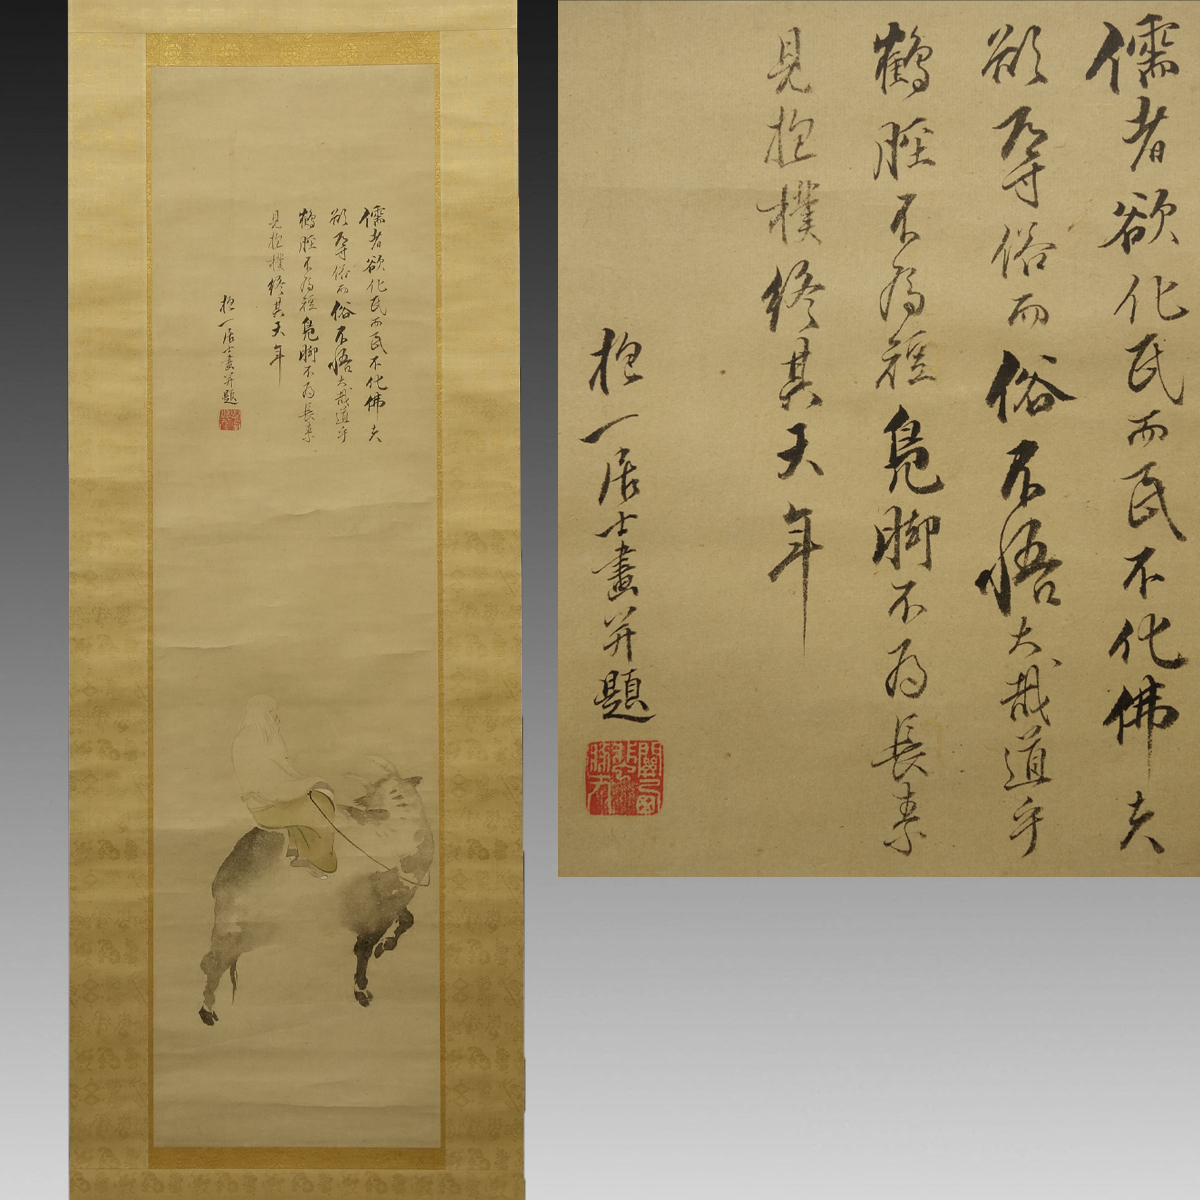 儒者欲化民而民不化佛夫
欲導俗而俗不悟大哉道乎
鶴脛不為短鳧脚不為長素
見抱樸終其天年
抱一居士畫并題
儒者欲化民而民不化佛夫
欲導俗而俗不悟大哉道乎
鶴脛不為短鳧脚不為長素
見抱樸終其天年
抱一居士畫并題